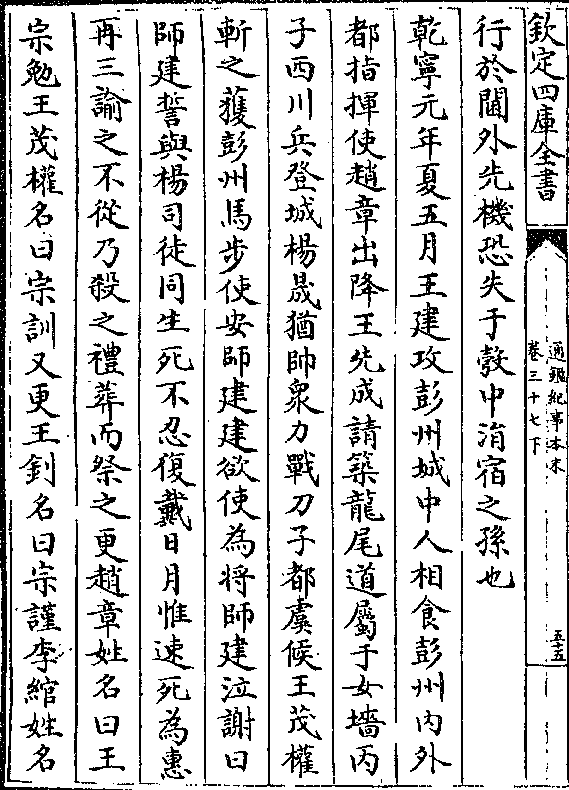 欽定四庫全書
通鑑紀事本末
卷三十七下
五十五
行於閫外先機恐失于彀中涓宿之孫也
乾寧元年夏五月王建攻彭州城中人相食彭州內外
都指揮使趙章出降王先成請築龍尾道屬于女墻丙
子西川兵登城楊晟猶帥衆力戰刀子都虞候王茂權
斬之獲彭州馬步使安師建建欲使為將師建泣謝曰
師建誓與楊司徒同生死不忍復戴日月惟速死為惠
再三諭之不從乃殺之禮葬而祭之更趙章姓名曰王
宗勉王茂權名曰宗訓又更王釗名曰宗謹李綰姓名